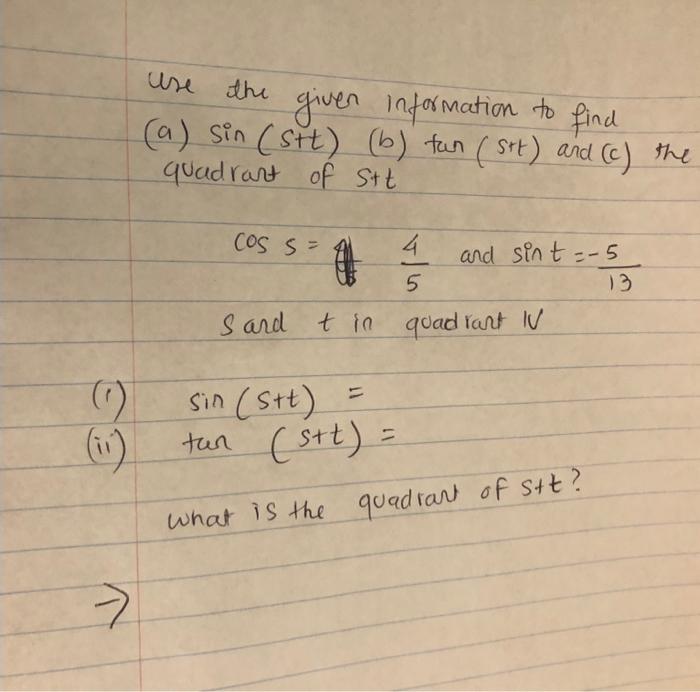 use the given information to find
(a) sin (s+t) (b) tan (s+t) and (c) the
quadrant of s+t
cos s = 4/5 and sin t = -5/13
s and t in quadrant IV
(i) sin (s+t) =
(ii) tan (s+t) =
what is the quadrant of s+t?
→